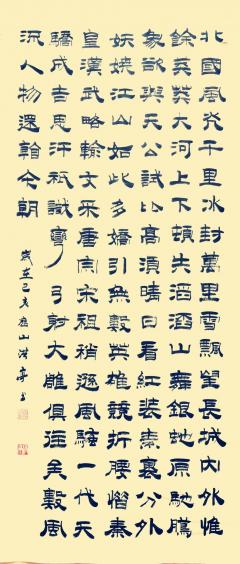 北國風光千里冰封萬里雪飄望長城內外惟
餘莽莽大河上下頓失滔滔山舞銀蛇原馳臘
象欲與天公試比高須晴日看紅裝素裹分外
妖嬈江山如此多嬌引無數英雄競折腰惜秦
皇漢武略輸文采唐宗宋祖稍遜風騷一代天
驕成吉思汗祗識彎弓射大雕俱往矣數風
流人物還看今朝
歲在己亥山亭书